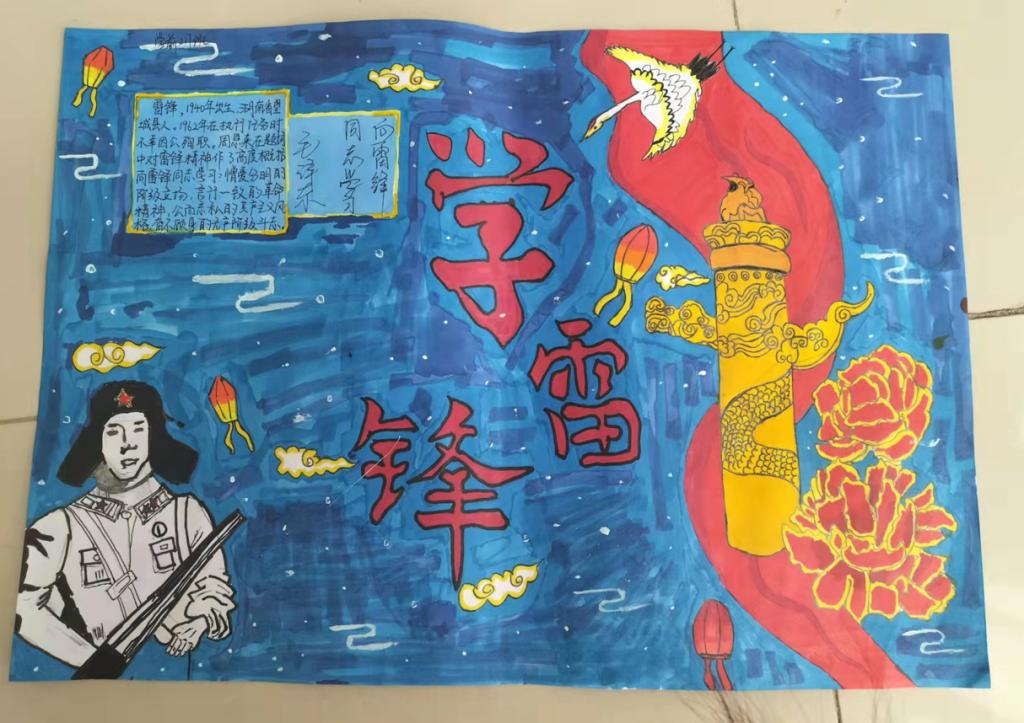 学前
雷锋,1940年出生,湖南省望
城县人。1962年在执行任务时
不幸因公殉职,周恩来在题词
中对雷锋精神作了高度概括
向雷锋同志学习:憎爱分明的
阶级立场,言行一致的革命
精神,公而忘私的共产主义风
格,奋不顾身的无产阶级斗志。
向雷锋
同志学习
毛泽东
学
雷
锋